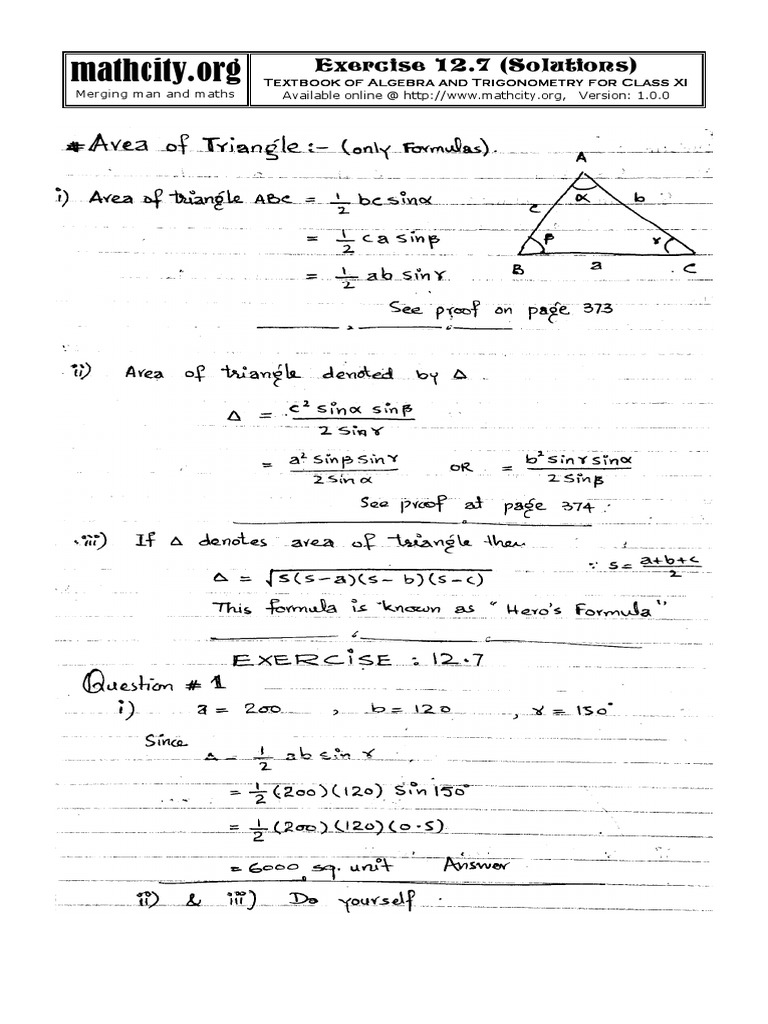 mathcity.org
Merging man and maths
Exercise 12.7 (Solutions)
TEXTBOOK OF ALGEBRA AND TRIGONOMETRY FOR CLASS XI
Available online @ http://www.mathcity.org, Version: 1.0.0
# Area of Triangle:- (only Formulas).
i) Area of triangle ABC = 1/2 bc sinα
= 1/2 ca sinβ
= 1/2 ab sinγ
A
α
c
b
β
γ
B
a
C
See proof on page 373
ii) Area of triangle denoted by Δ
Δ = c² sinα sinβ / 2 sinγ
= a² sinβ sinγ / 2 sinα OR = b² sinγ sinα / 2 sinβ
See proof at page 374.
iii) If Δ denotes area of triangle then
Δ = √s(s-a)(s-b)(s-c) ∵ s = a+b+c / 2
This formula is known as "Hero's Formula"
EXERCISE : 12.7
Question # 1
i) a = 200 , b = 120 , γ = 150°
Since
Δ = 1/2 ab sin γ
= 1/2 (200)(120) sin 150°
= 1/2 (200)(120)(0.5)
= 6000 sq. unit Answer
ii) & iii) Do yourself.